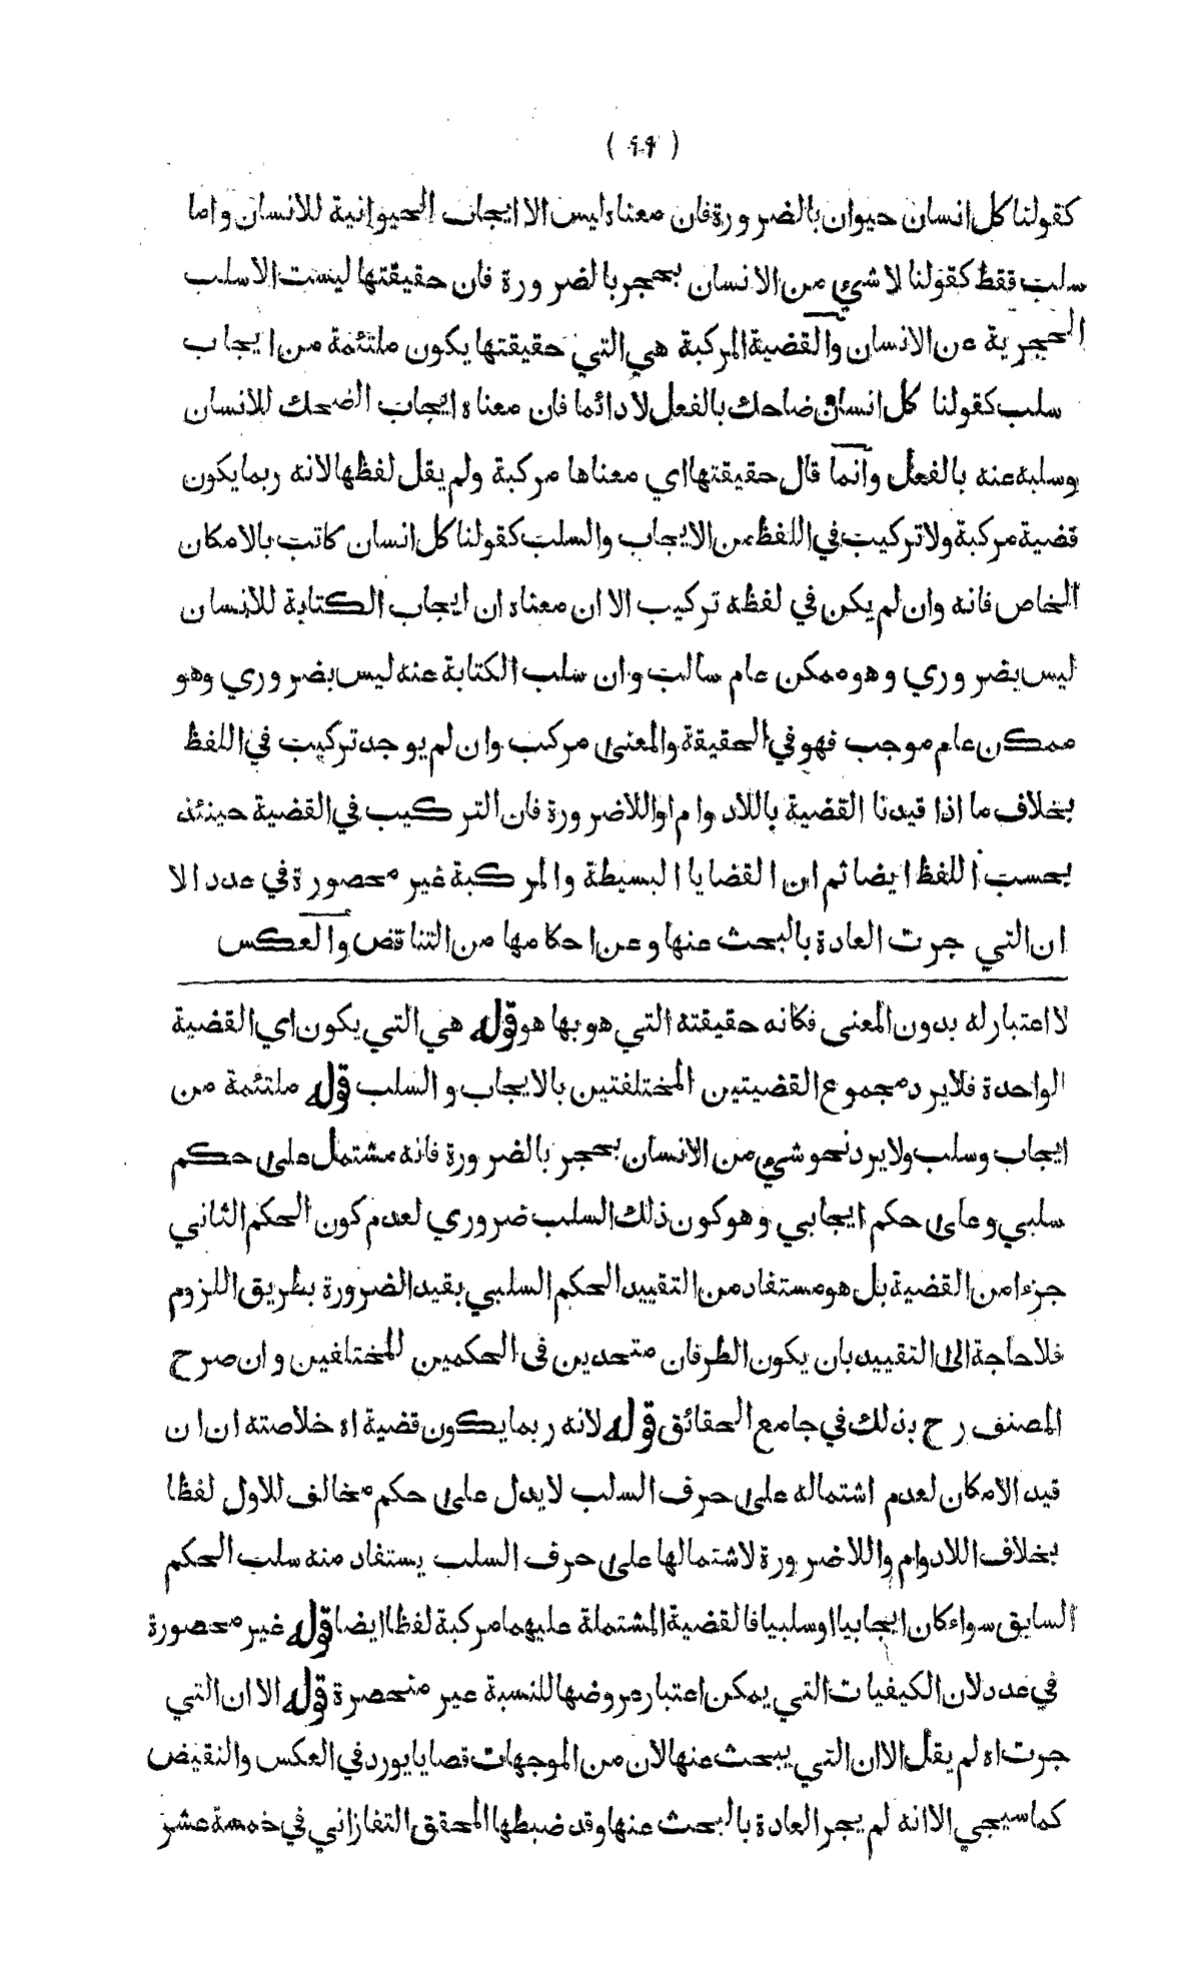 ( ٩٩ )
كقولنا كل انسان حيوان بالضرورة فان معناه ليس الا ايجاب الحيوانية للانسان واما
سلب فقط كقولنا لا شيء من الانسان بحجر بالضرورة فان حقيقتها ليست الا سلب
الحجرية عن الانسان والقضية المركبة هي التي حقيقتها يكون ملتئمة من ايجاب
سلب كقولنا كل انسان ضاحك بالفعل لا دائما فان معناه ايجاب الضحك للانسان
وسلبه عنه بالفعل وانما قال حقيقتها اي معناها مركبة ولم يقل لفظها لانه ربما يكون
قضية مركبة ولا تركيب في اللفظ من الايجاب والسلب كقولنا كل انسان كاتب بالامكان
الخاص فانه وان لم يكن في لفظه تركيب الا ان معناه ان ايجاب الكتابة للانسان
ليس بضروري وهو ممكن عام سالب وان سلب الكتابة عنه ليس بضروري وهو
ممكن عام موجب فهو في الحقيقة والمعنى مركب وان لم يوجد تركيب في اللفظ
بخلاف ما اذا قيدنا القضية باللادوام او اللاضرورة فان التركيب في القضية حينئذ
بحسب اللفظ ايضا ثم ان القضايا البسيطة والمركبة غير محصورة في عدد الا
ان التي جرت العادة بالبحث عنها وعن احكامها من التناقض والعكس
لا اعتبار له بدون المعنى فكانه حقيقته التي هو بها هو قوله هي التي يكون اي القضية
الواحدة فلا يرد مجموع القضيتين المختلفتين بالايجاب والسلب قوله ملتئمة من
ايجاب وسلب ولا يرد نحو شيء من الانسان بحجر بالضرورة فانه مشتمل على حكم
سلبي وعلى حكم ايجابي وهو كون ذلك السلب ضروري لعدم كون الحكم الثاني
جزءا من القضية بل هو مستفاد من التقييد الحكم السلبي بقيد الضرورة بطريق اللزوم
فلا حاجة الى التقييد بان يكون الطرفان متحدين فى الحكمين للمختلفين وان صرح
المصنف رح بذلك في جامع الحقائق قوله لانه ربما يكون قضية اه خلاصته ان ان
قيد الامكان لعدم اشتماله على حرف السلب لا يدل على حكم مخالف للاول لفظا
بخلاف اللادوام واللاضرورة لاشتمالها على حرف السلب يستفاد منه سلب الحكم
السابق سواء كان ايجابيا او سلبيا فالقضية المشتملة عليهما مركبة لفظا ايضا قوله غير محصورة
في عدد لان الكيفيات التي يمكن اعتبار عروضها للنسبة عير منحصرة قوله الا ان التي
جرت اه لم يقل الا ان التي يبحث عنها لان من الموجهات قصايا يورد في العكس والنقيض
كما سيجي الا انه لم يجر العادة بالبحث عنها وقد ضبطها المحقق التفازاني في خمسة عشر